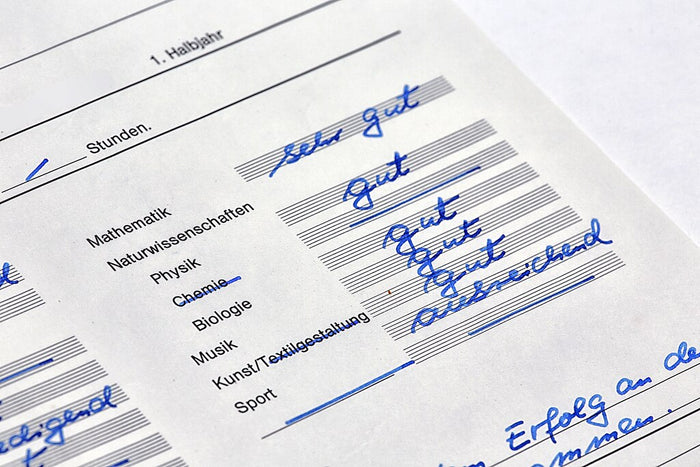 1. Halbjahr
Stunden.
Mathematik sehr gut
Naturwissenschaften
Physik gut
Chemie
Biologie gut
Musik gut
Kunst/Textilgestaltung gut
Sport ausreichend
edigend
Erfolg an de
mmen.